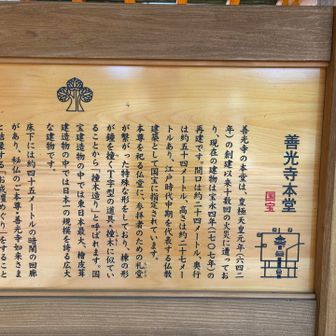 善光寺本堂
国宝
善光寺の本堂は、皇極天皇元年(六四二
年)の創建以来十数回の火災に遭ってお
り、現在の建物は宝永四年(一七〇七年)の
再建です。間口は約二十四メートル、奥行
は約五十四メートル、高さは約二十七メー
トルあり、江戸時代中期を代表する仏教
建築として国宝に指定されています。
本尊を祀る仏堂に、参拝者のための礼堂
が繋がった特殊な形をしており、棟の形
が鐘を撞くT字型の道具・撞木に似てい
ることから「撞木造り」と呼ばれます。国
宝建造物の中では東日本最大、檜皮葺
建造物の中では日本一の規模を誇る広大
な建物です。
床下には約四十五メートルの暗闇の回廊
があり、秘仏のご本尊・善光寺如来さま
と結縁する「お戒壇めぐり」をすること